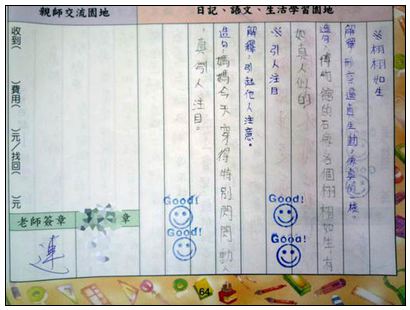 日記、語文、生活學習園地
※栩栩如生
解釋:形容逼真生動,像真的一樣。
造句:博物館的石像各個栩栩如生,有
如真人似的
※引人注目
解釋:引起他人注意。
造句:媽媽今天穿得特別閃閃動人
,真引人注目。
Good!
Good!
Good!
Good!
親師交流園地
收到( )費用( )元/找回( )元
老師簽章
章
連
64